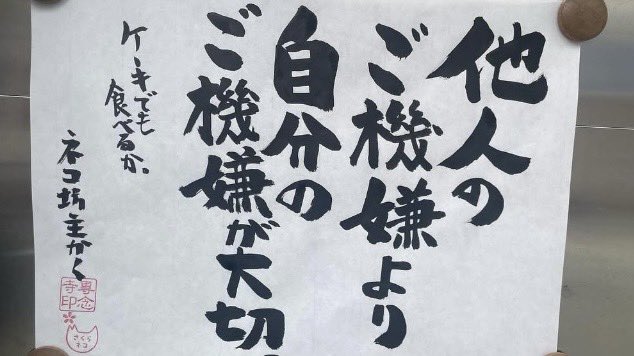 他人の
ご機嫌より
自分の
ご機嫌が大切。
ケーキでも
食べるか。
ネコ坊主かく
専念
寺印
さくら
ネコ